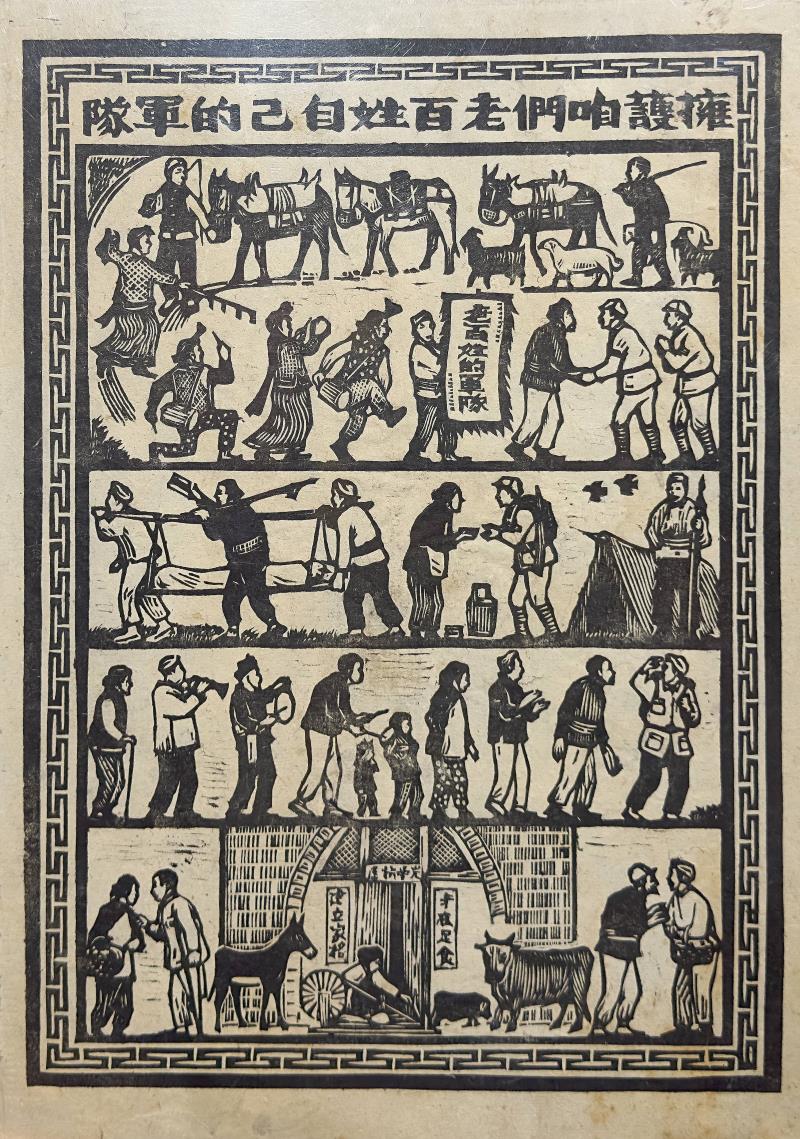 擁護咱們老百姓自己的軍隊
老百姓的軍隊
丰衣足食
建立家務